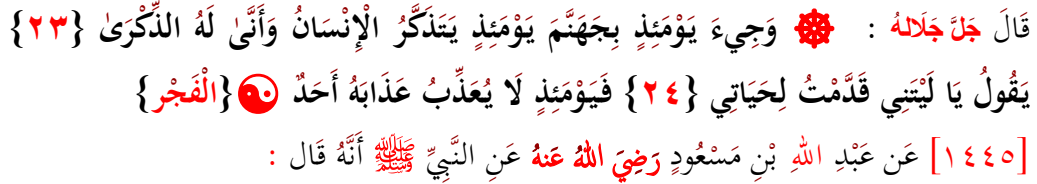 قَالَ جَلَّ جَلَالهُ : ☸ وَجِيءَ يَوْمَئِذٍ بِجَهَنَّمَ يَوْمَئِذٍ يَتَذَكَّرُ الْإِنْسَانُ وَأَنَّىٰ لَهُ الذِّكْرَىٰ {٢٣}
يَقُولُ يَا لَيْتَنِي قَدَّمْتُ لِحَيَاتِي {٢٤} فَيَوْمَئِذٍ لَا يُعَذِّبُ عَذَابَهُ أَحَدٌ ☯ {الْفَجْر}
[١٤٤٥] عَن عَبْدِ اللهِ بْنِ مَسْعُودٍ رَضِيَ اللهُ عَنهُ عَنِ النَّبِيِّ ﷺ أَنَّهُ قَال :